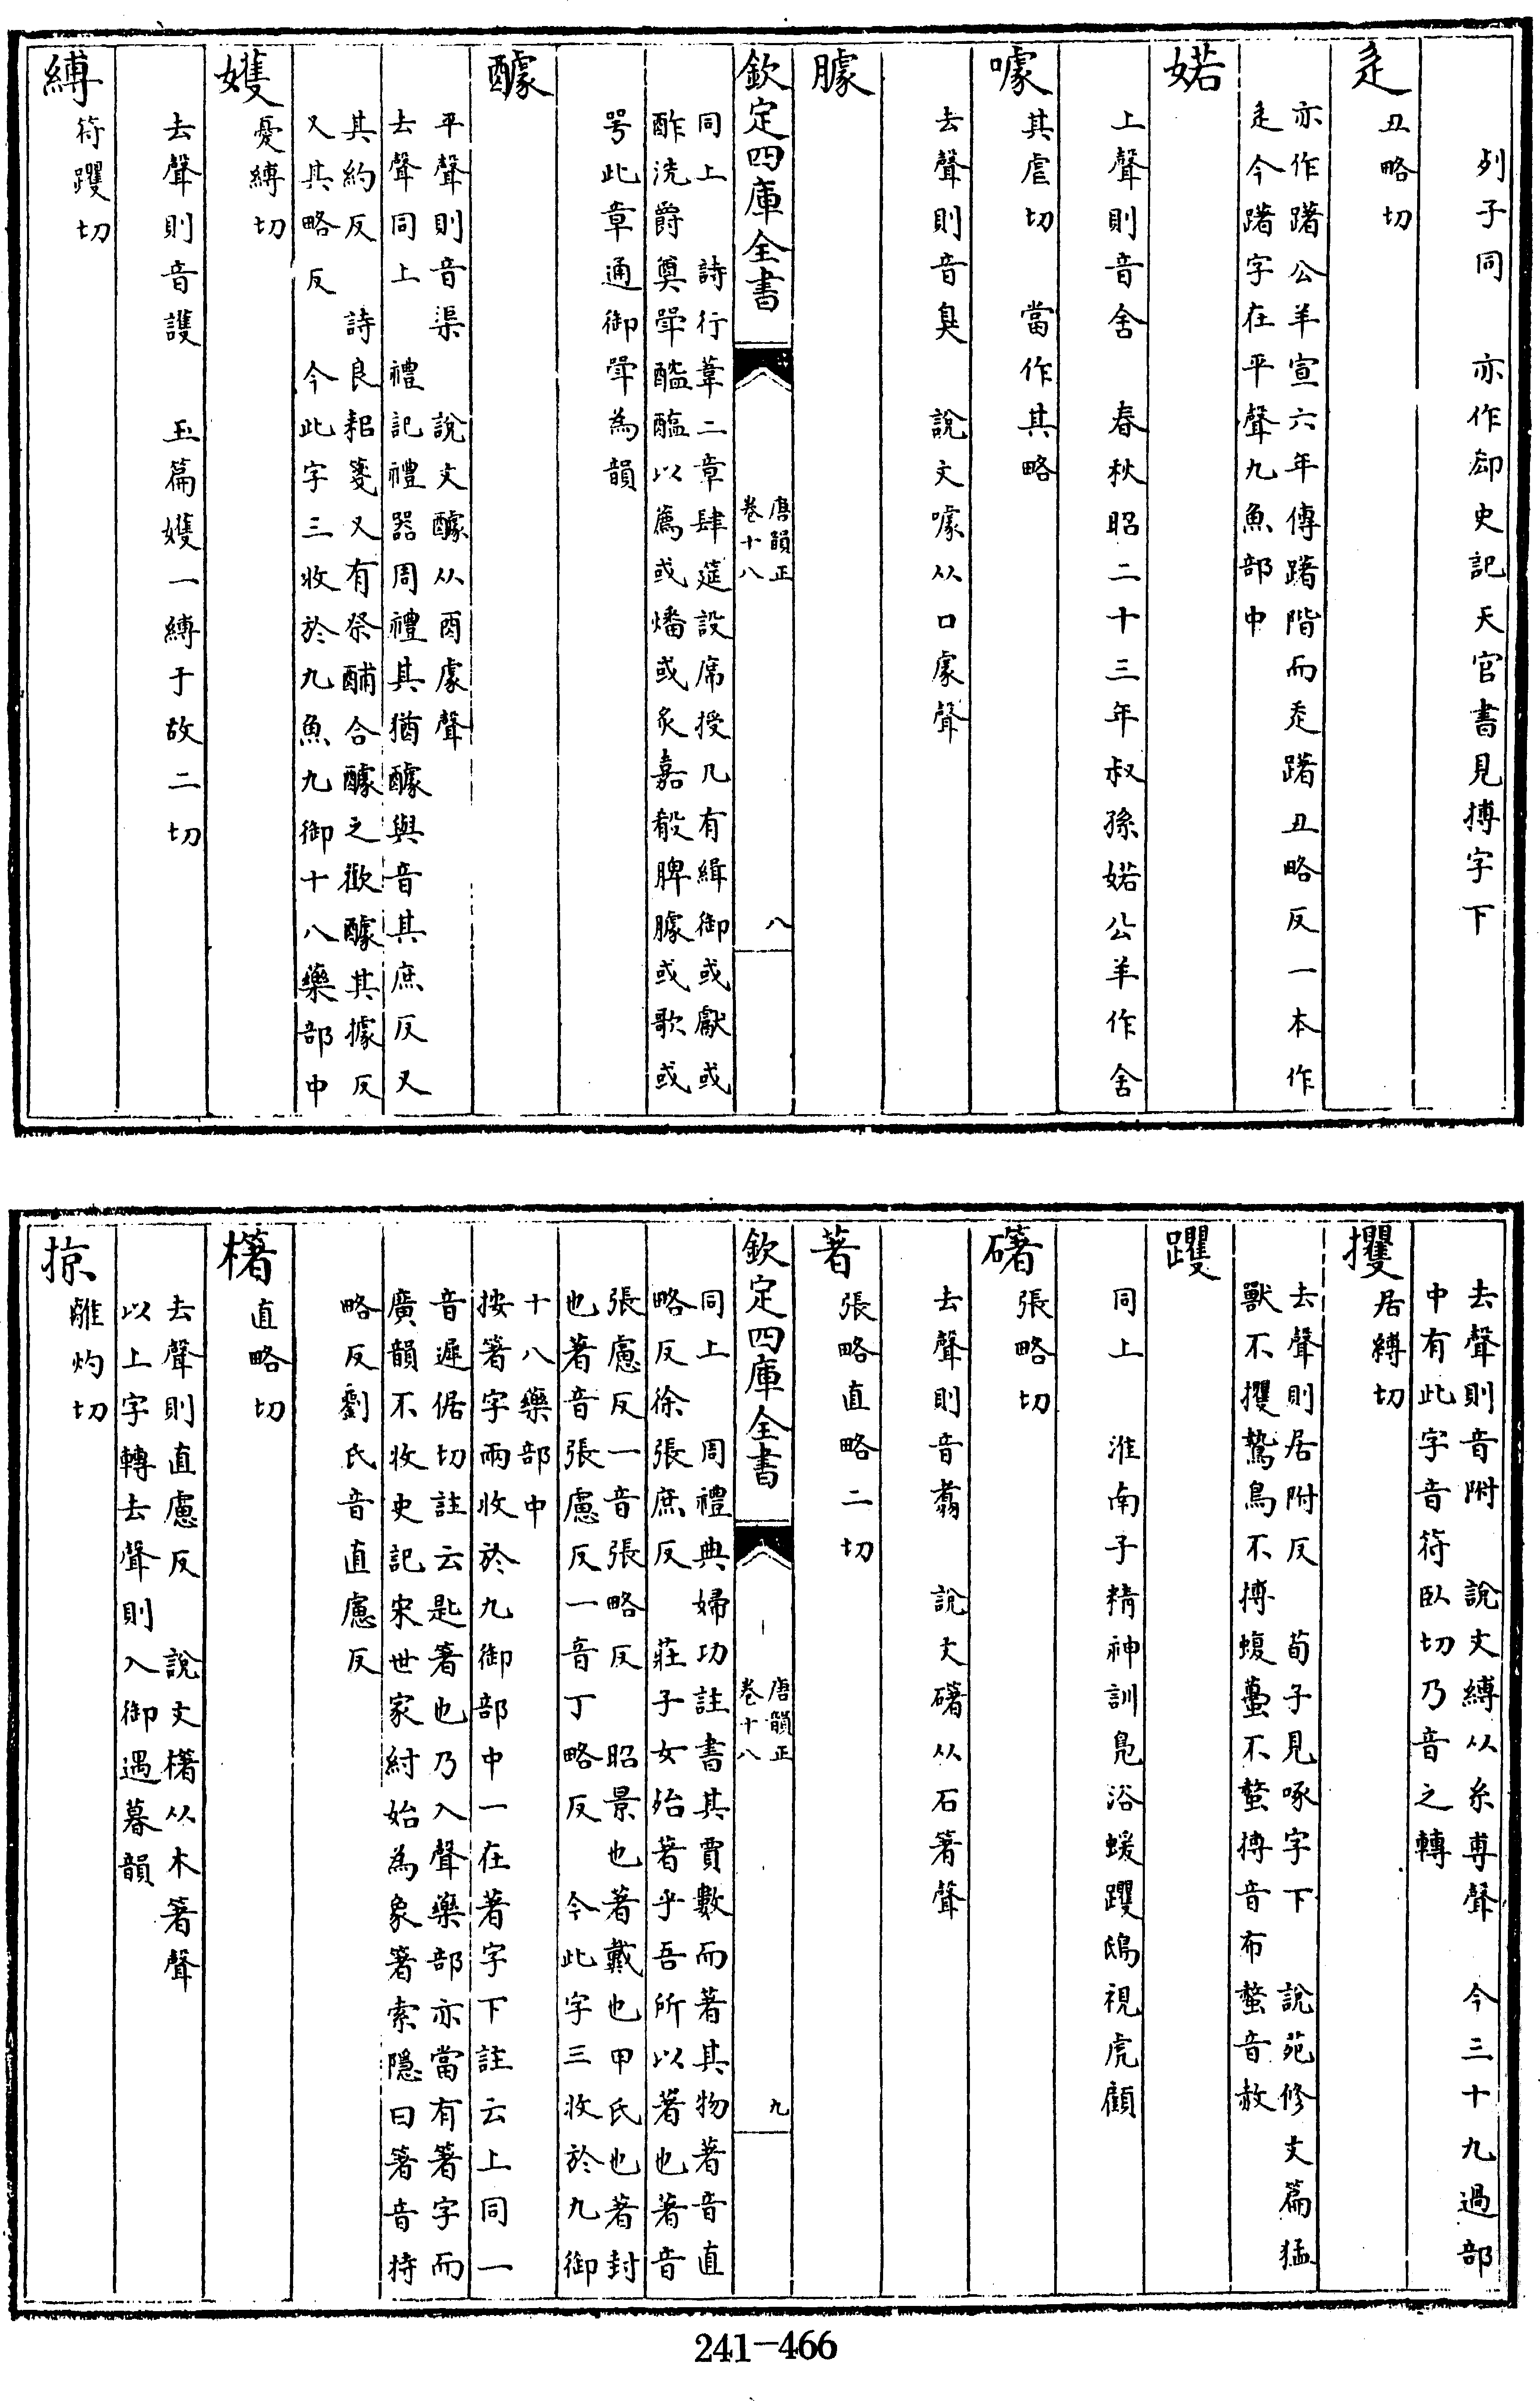 列子同　亦作却史記天官書見搏字下
辵丑略切
亦作躇公羊宣六年傳躇階而走躇丑略反一本作
辵今躇字在平聲九魚部中
婼
上聲則音舍　春秋昭二十三年叔孫婼公羊作舍
噱其虐切　當作其略
去聲則音臭　說文噱从口豦聲
臄
欽定四庫全書
唐韻正
卷十八
八
同上　詩行葦二章肆筵設席授几有緝御或獻或
酢洗爵奠斝醓醢以薦或燔或炙嘉殽脾臄或歌或
咢此章通御斝為韻
醵
平聲則音渠　說文醵从酉豦聲
去聲同上　禮記禮器周禮其猶醵與音其庶反又
其約反　詩良耜箋又有祭酺合醵之歡醵其據反
又其略反　今此字三收於九魚九御十八藥部中
嬳憂縛切
去聲則音護　玉篇嬳一縛于故二切
縛符躩切
去聲則音附　說文縛从糸尃聲　今三十九過部
中有此字音符臥切乃音之轉
攫居縛切
去聲則居附反　荀子見啄字下　說苑修文篇猛
獸不攫鷙鳥不搏蝮蠆不螫搏音布螫音赦
躩
同上　淮南子精神訓鳧浴蝯躩鴟視虎顧
礋張略切
去聲則音翥　說文礋从石箸聲
著張略直略二切
欽定四庫全書
唐韻正
卷十八
九
同上　周禮典婦功註書其賈數而著其物著音直
略反徐張庶反　莊子女殆著乎吾所以著也著音
張慮反一音張略反　昭景也著戴也甲氏也著封
也著音張慮反一音丁略反　今此字三收於九御
十八藥部中
按箸字兩收於九御部中一在著字下註云上同一
音遲倨切註云匙箸也乃入聲藥部亦當有箸字而
廣韻不收史記宋世家紂始為象箸索隱曰箸音持
略反劉氏音直慮反
櫡直略切
去聲則直慮反　說文櫡从木箸聲
以上字轉去聲則入御遇暮韻
掠離灼切
241-466